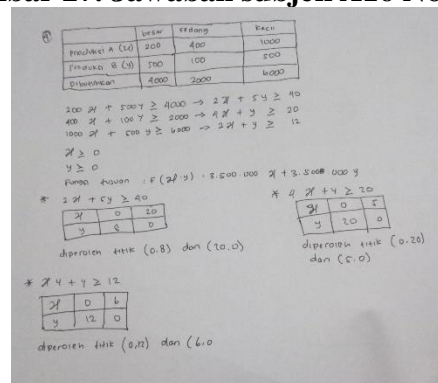 besar sedang kecil
Produksi A (x) 200 400 1000
Produksi B (y) 500 100 500
Dibutuhkan 4000 2000 6000
200 x + 500 y ≥ 4000 → 2x + 5y ≥ 40
400 x + 100 y ≥ 2000 → 4x + y ≥ 20
1000 x + 500 y ≥ 6000 → 2x + y ≥ 12
x ≥ 0
y ≥ 0
Fungsi tujuan : F (x,y) = 3.500.000 x + 3.500.000 y
* 2x + 5y ≥ 40
x 0 20
y 8 0
diperoleh titik (0.8) dan (20.0)
* 4 x + y ≥ 20
x 0 5
y 20 0
diperoleh titik (0.20)
dan (5.0)
* x 4 + y ≥ 12
x 0 6
y 12 0
diperoleh titik (0,12) dan (6.0